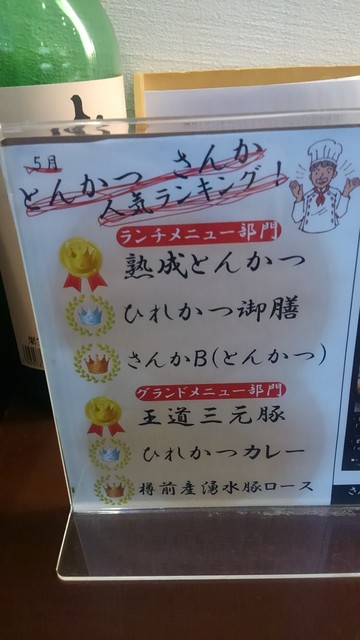 5月
とんかつ さんか
人気ランキング!
ランチメニュー部門
熟成とんかつ
ひれかつ御膳
さんかB(とんかつ)
グランドメニュー部門
王道三元豚
ひれかつカレー
樽前産湧水豚ロース